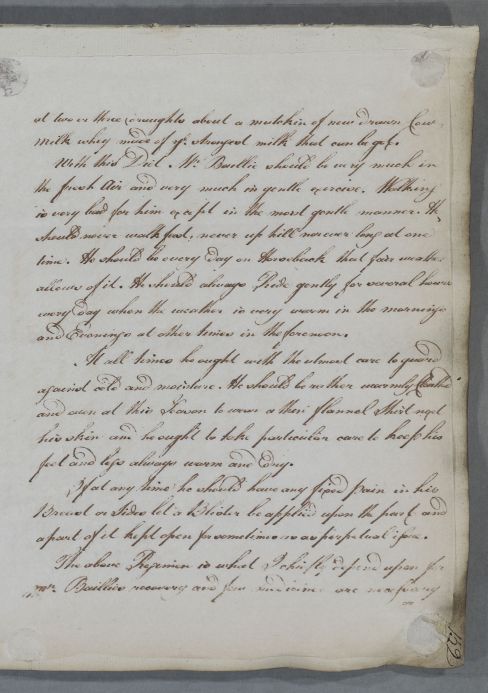 at two or three draughts about a mutchkin of new drawn Cow
milk whey made of ye strongest milk that can be got.
With this Diet Mr Baillie should be very much in
the fresh Air and very much in gentle exercise. Walking
is very bad for him except in the most gentle manner. He
should never walk fast, never up hill nor ever long at one
time. He should be every Day on Horseback that fair weather
allows of it. He should always Ride gently for several hours
every day when the weather is very warm in the mornings
and Evenings at other times in the forenoon.
At all times he ought with the utmost care to guard
against cold and moisture. He should be rather warmly Cloathed
and even at this Season to wear a thin flannel Shirt next
his skin and he ought to take particular care to keep his
feet and legs always warm and dry.
If at any time he should have any fixed Pain in his
Breast or Sides let a Blister be applied upon the part and
a part of it kept open for sometime as a perpetual issue.
The above Regimen is what I chiefly depend upon for
Mr. Baillies recovery and few medicines are necessary
or
152